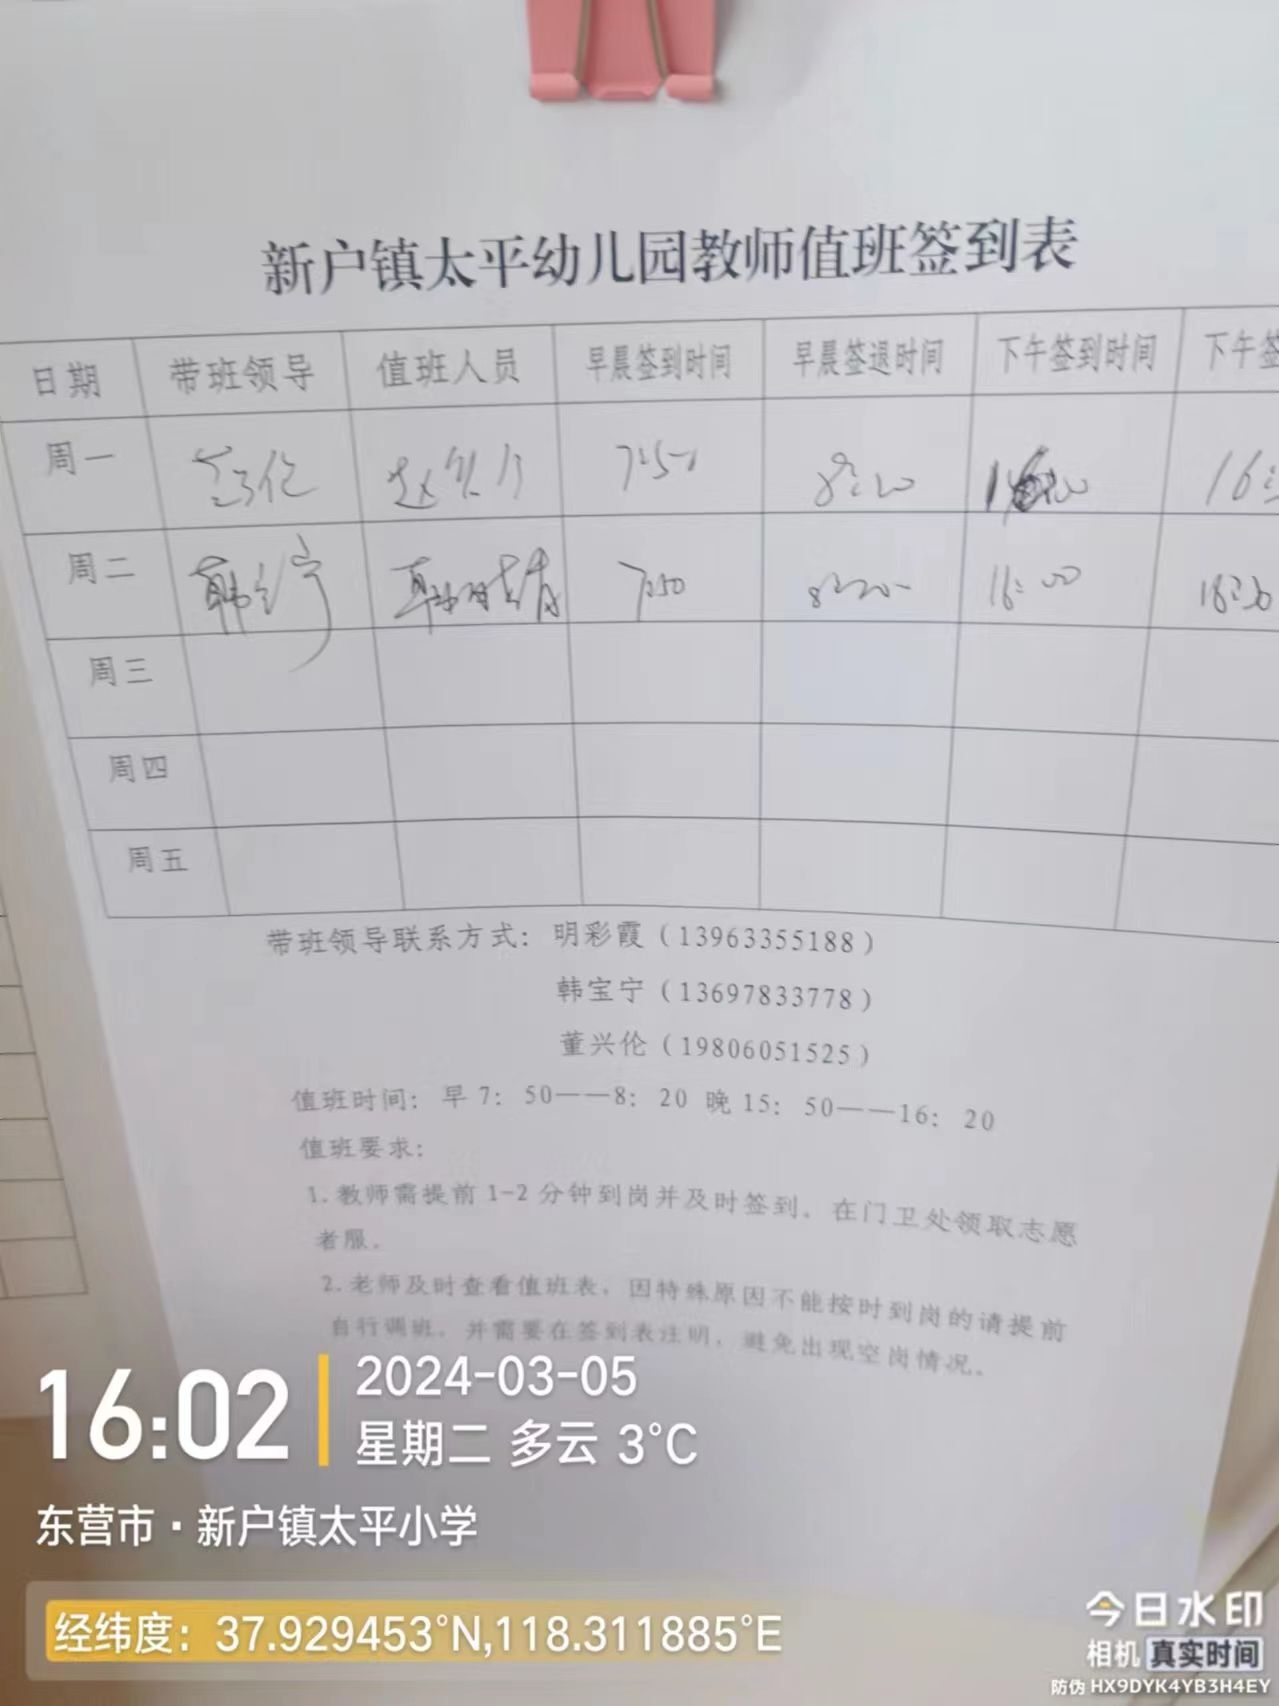 新户镇太平幼儿园教师值班签到表
日期 带班领导 值班人员 早晨签到时间 早晨签退时间 下午签到时间 下午签
周一 7:50 8:20 16:
周二 韩宝宁 7:50 8:20 16:00 16:20
周三
周四
周五
带班领导联系方式：明彩霞（13963355188）
韩宝宁（13697833778）
董兴伦（19806051525）
值班时间：早7：50——8：20 晚15：50——16：20
值班要求：
1.教师需提前1-2分钟到岗并及时签到，在门卫处领取志愿
者服。
2.老师及时查看值班表，因特殊原因不能按时到岗的请提前
自行调班，并需要在签到表注明，避免出现空岗情况。
16:02
2024-03-05
星期二 多云 3°C
东营市·新户镇太平小学
经纬度：37.929453°N,118.311885°E
今日水印
相机 真实时间
防伪 HX9DYK4YB3H4EY